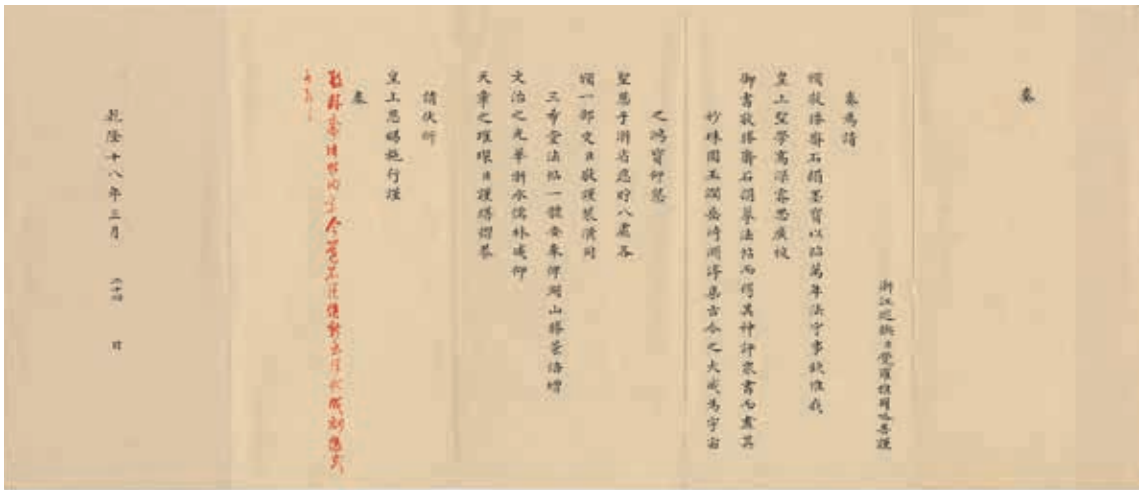 奏
浙江巡撫臣覺羅雅爾哈善謹
奏為請
頒敬勝齋石刻墨寶以昭萬年法守事欽惟我
皇上聖學高深睿思廣被
御書敬勝齋石刻摹法帖而得其神評眾書而盡其
妙珠圓玉潤岳峙淵渟集古今之大成為宇宙
之鴻寶仰懇
聖慈于浙省恩貯八處各
頒一部交臣敬謹裝潢同
三希堂法帖一體安奉俾湖山勝景倍增
文治之光華浙水儒林咸仰
天章之璀璨臣謹繕摺恭
請伏祈
皇上恩賜施行謹
奏
乾隆十八年三月 二十四 日